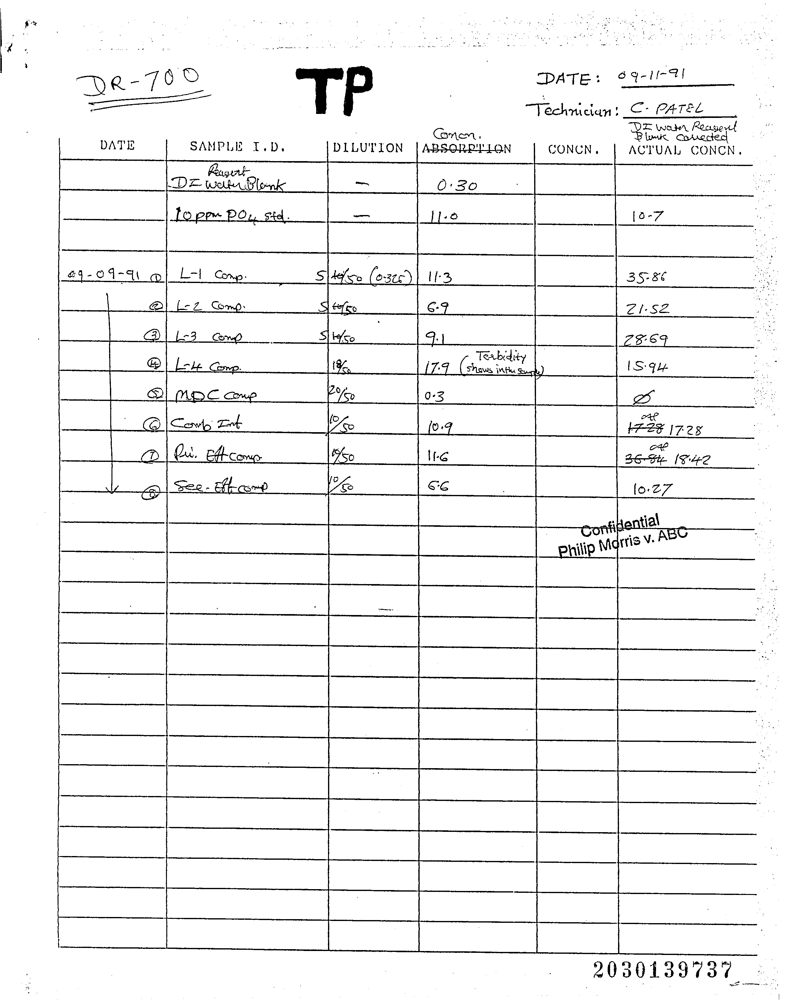 DR-700 TP DATE: 09-11-91
Technician: C. PATEL
DATE SAMPLE I.D. DILUTION Concn. ABSORPTION CONCN. DI water Reagent Blank corrected ACTUAL CONCN.
Reagent
DI water Blank — 0.30
10 ppm PO4 std. — 11.0 10.7
09-09-91 ① L-1 Comp. 5 /50 (0.325) 11.3 35.86
② L-2 Comp. 5 /50 6.9 21.52
③ L-3 Comp 5 /50 9.1 28.69
④ L-4 Comp. /50 17.9 (Terbidity shows in the sample) 15.94
⑤ MDC Comp 20/50 0.3 ∅
⑥ Comb Inf 10/50 10.9 17.28 17.28
⑦ Pri. Eff comp 10/50 11.6 36.84 18.42
⑧ Sec. Eff comp 10/50 6.6 10.27
Confidential
Philip Morris v. ABC
2030139737